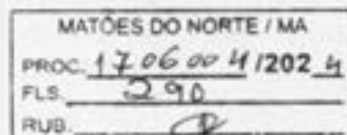 MATÕES DO NORTE / MA
PROC. 1706004/2024
FLS. 290
RUB.